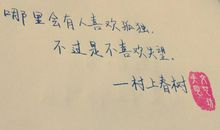 哪里会有人喜欢孤独,
不过是不喜欢失望.
—村上春树